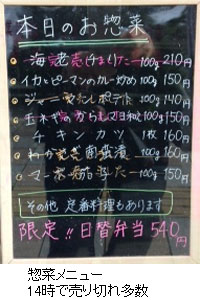 本日のお惣菜
100g 210円
イカとピーマンのカレー炒め 100g 150円
100g 140円
玉ネギのからしマヨ和え 100g 150円
チキンカツ 1枚 160円
100g 160円
100g 150円
その他 定番料理もあります
限定!! 日替弁当540円
惣菜メニュー
14時で売り切れ多数